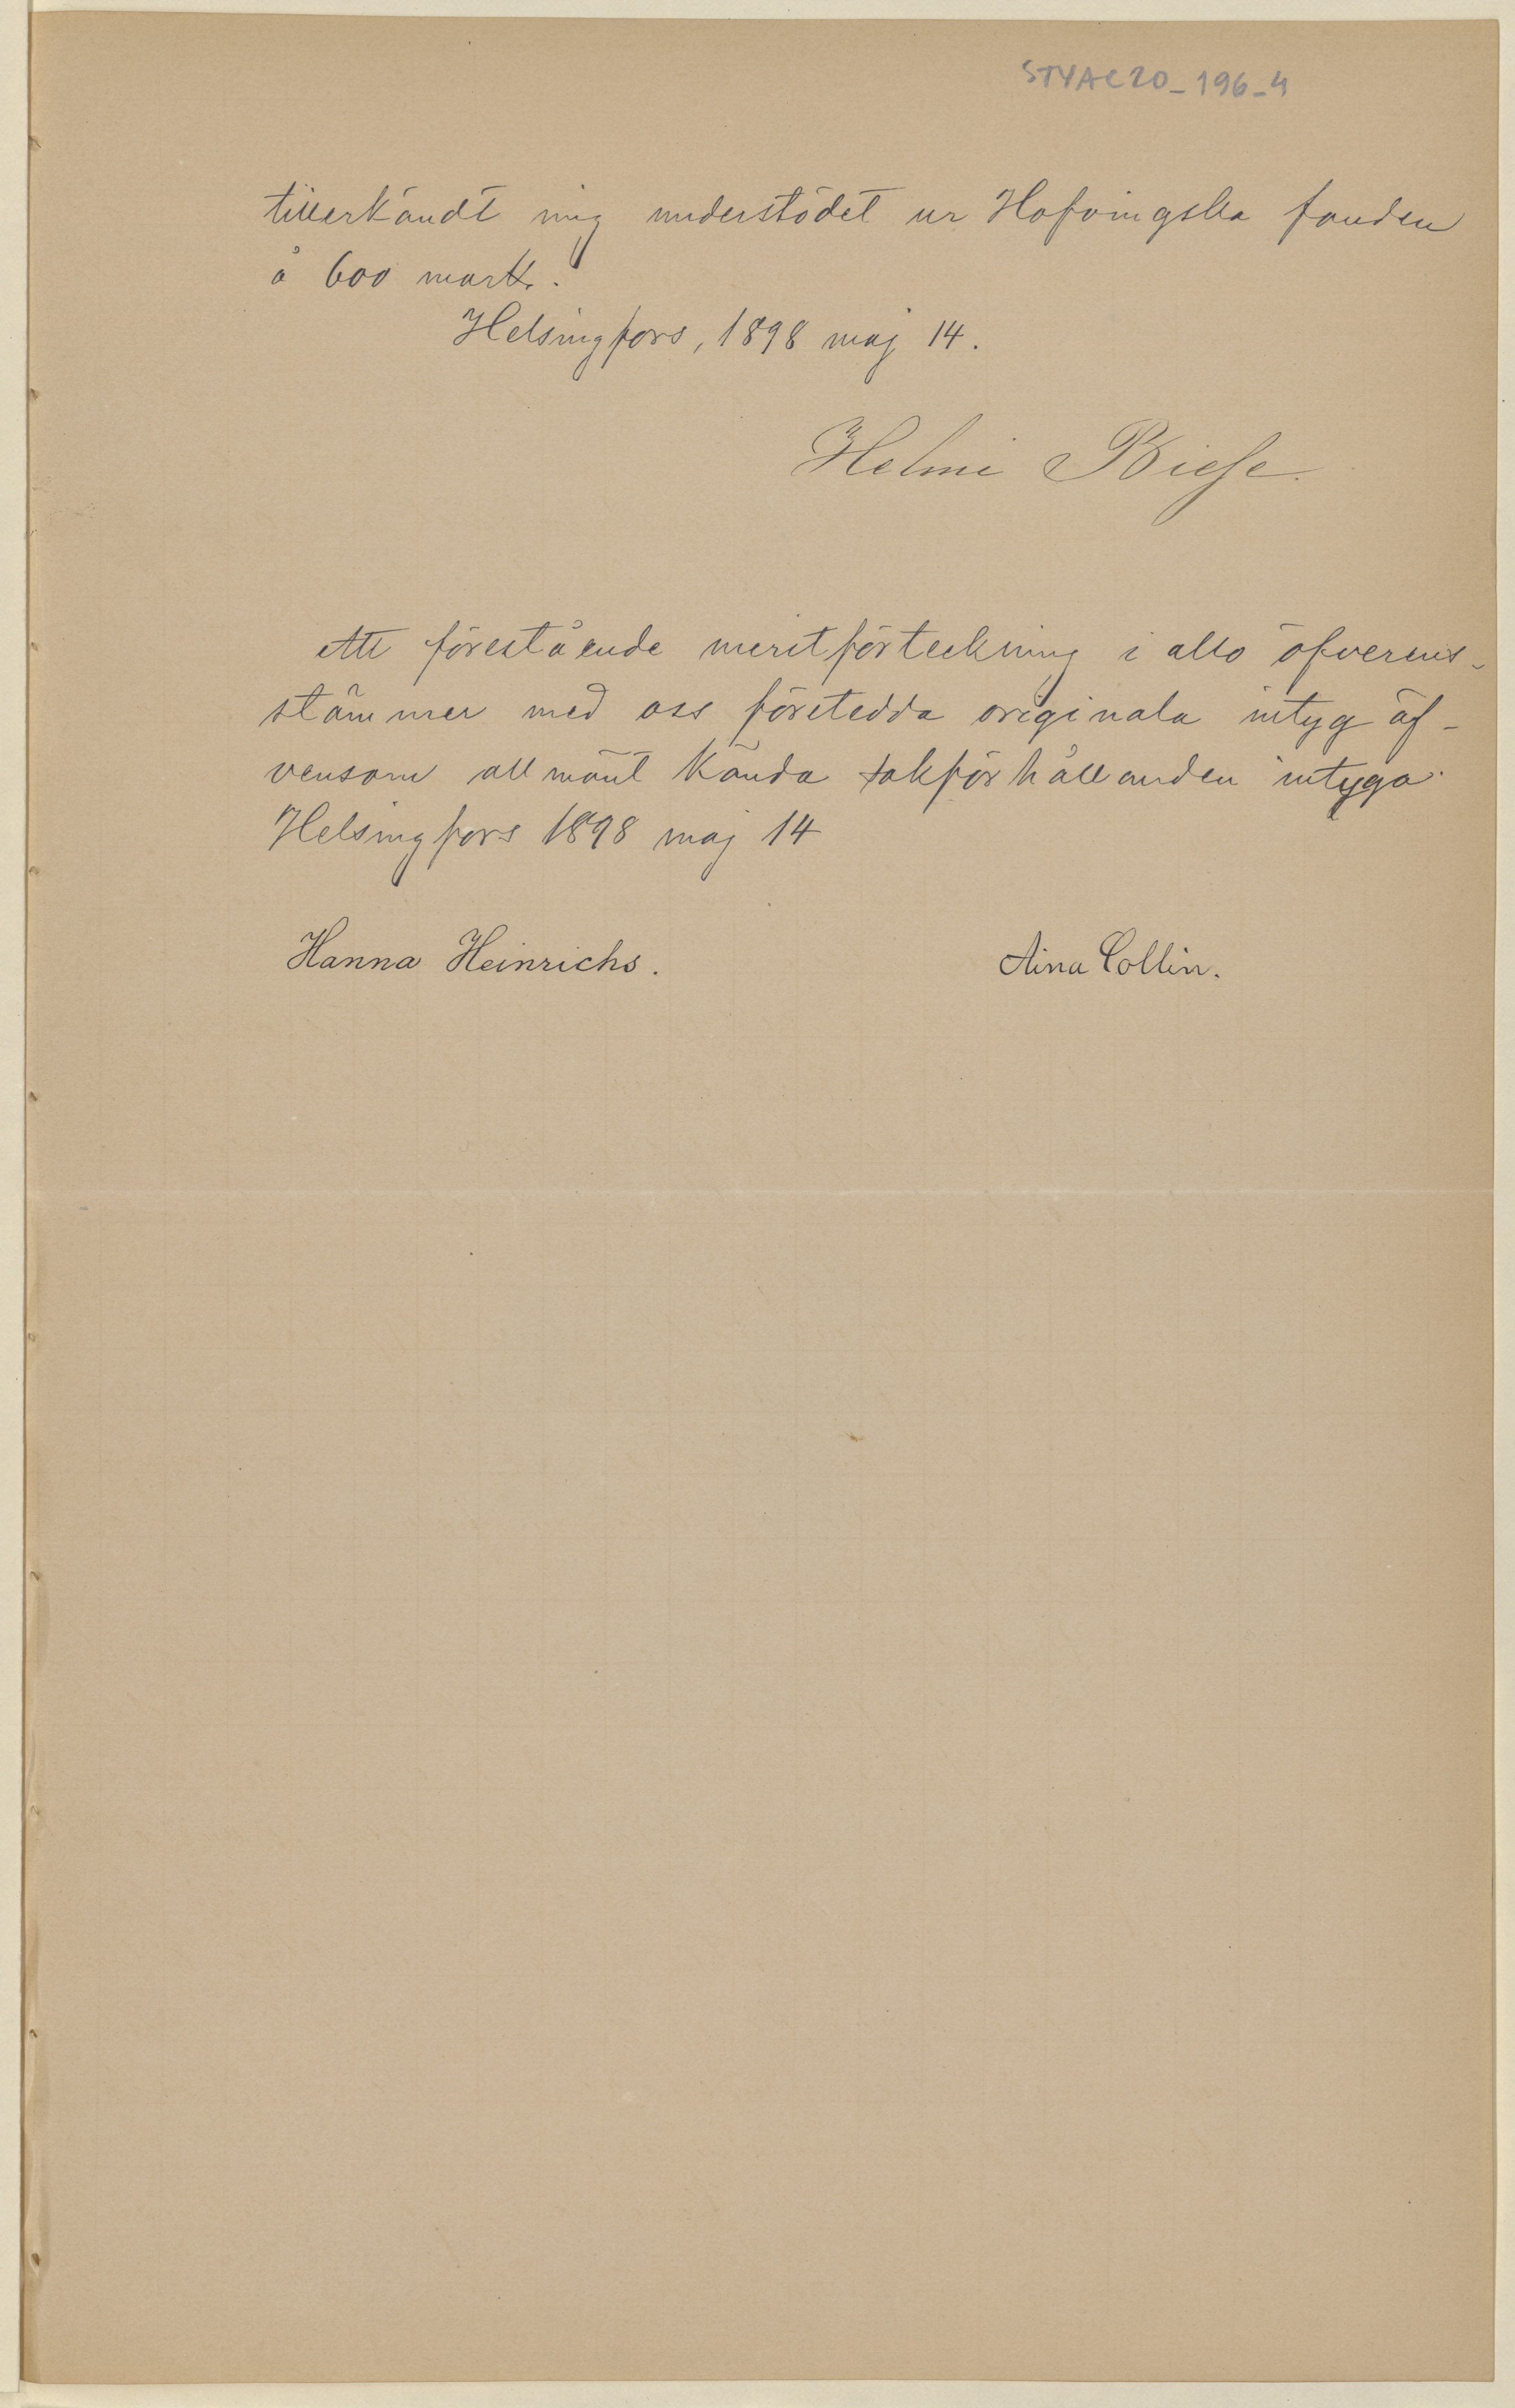 STYAC20_196_4
tillerkändt mig understödet ur Hofvingska fonden
å 600 mark.
Helsingfors, 1898 maj 14.
Helmi Biese.
Att förestående meritförteckning i allo öfverens-
stämmer med oss företedda originala intyg äf-
vensom allmänt kända sakförhållanden intyga.
Helsingfors 1898 maj 14
Hanna Heinrichs.
Aina Collin.